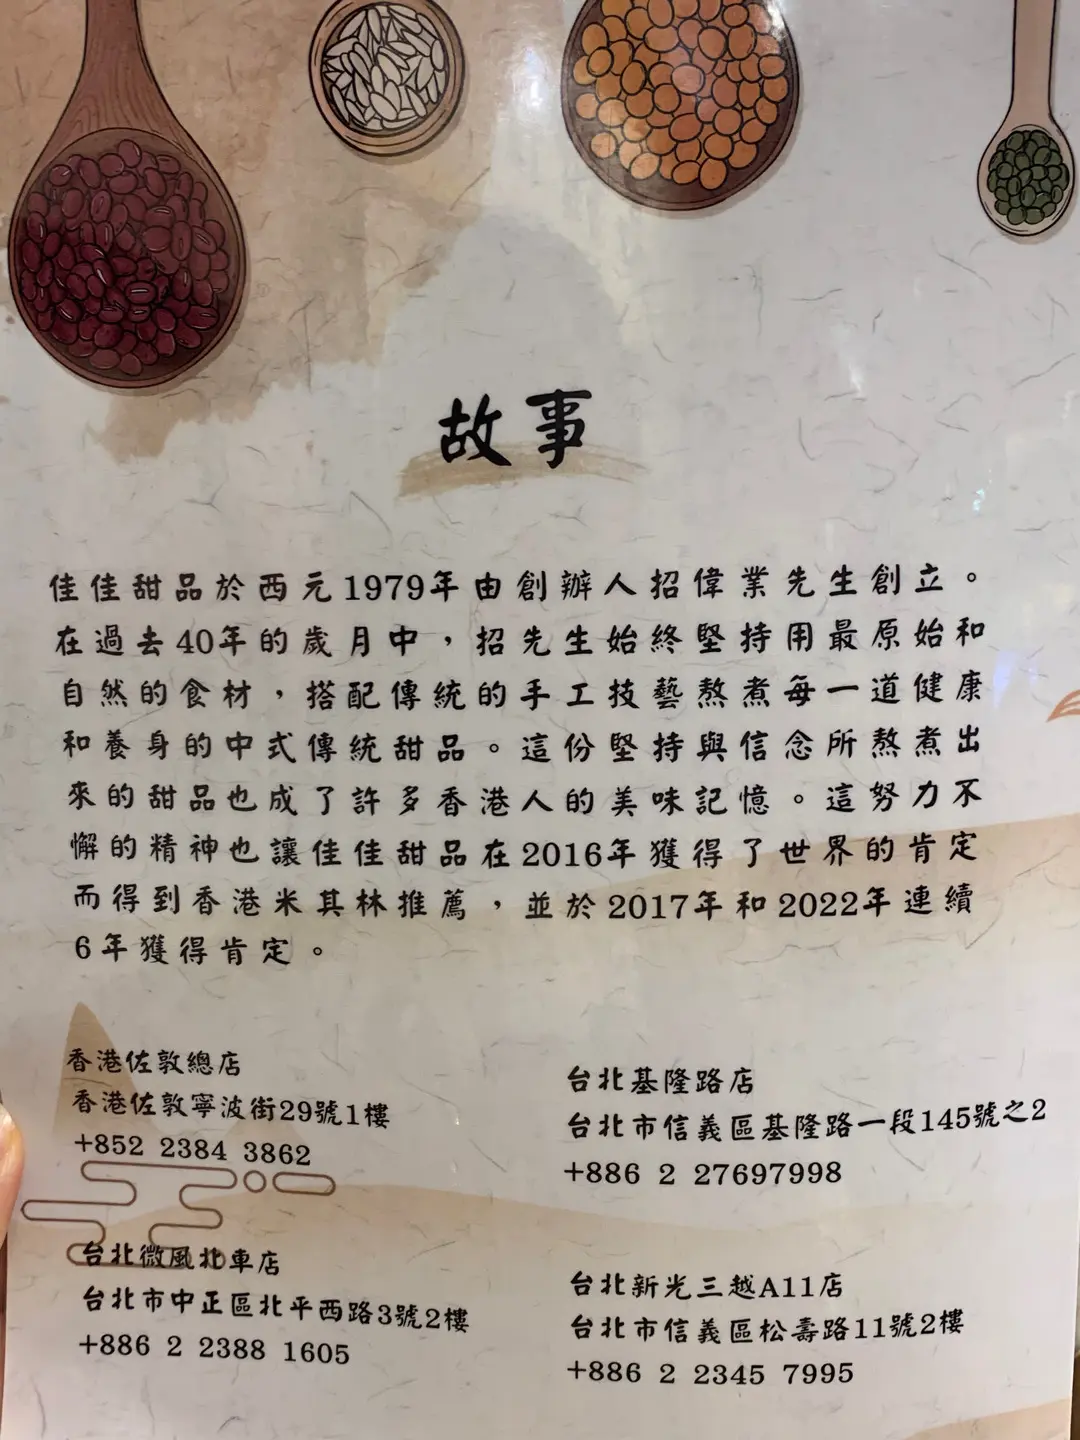 故事
佳佳甜品於西元1979年由創辦人招偉業先生創立。
在過去40年的歲月中，招先生始終堅持用最原始和
自然的食材，搭配傳統的手工技藝熬煮每一道健康
和養身的中式傳統甜品。這份堅持與信念所熬煮出
來的甜品也成了許多香港人的美味記憶。這努力不
懈的精神也讓佳佳甜品在2016年獲得了世界的肯定
而得到香港米其林推薦，並於2017年和2022年連續
6年獲得肯定。
香港佐敦總店
香港佐敦寧波街29號1樓
+852 2384 3862
台北基隆路店
台北市信義區基隆路一段145號之2
+886 2 27697998
台北微風北車店
台北市中正區北平西路3號2樓
+886 2 2388 1605
台北新光三越A11店
台北市信義區松壽路11號2樓
+886 2 2345 7995